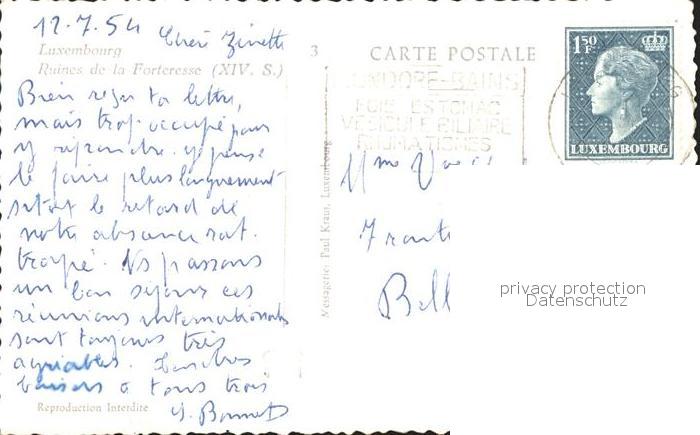 12.7.54 Chère Zinette
Luxembourg
Ruines de la Forteresse (XIV. S.)
Bien reçu ta lettre,
mais trop occupé pour
y répondre. je pense
le faire plus longuement
sitôt le retard de
notre absence rat-
trapé. Ns passons
un bon séjour ces
réunions internationales
sont toujours très
agréables. Tendres
baisers à tous trois
Reproduction Interdite
3
CARTE POSTALE
MONDORF-BAINS
FOIE ESTOMAC
VESICULE BILIAIRE
RHUMATISMES
1.50
F
LUXEMBOURG
Messageries Paul Kraus, Luxembourg
Mme
7 route
Bell
privacy protection
Datenschutz